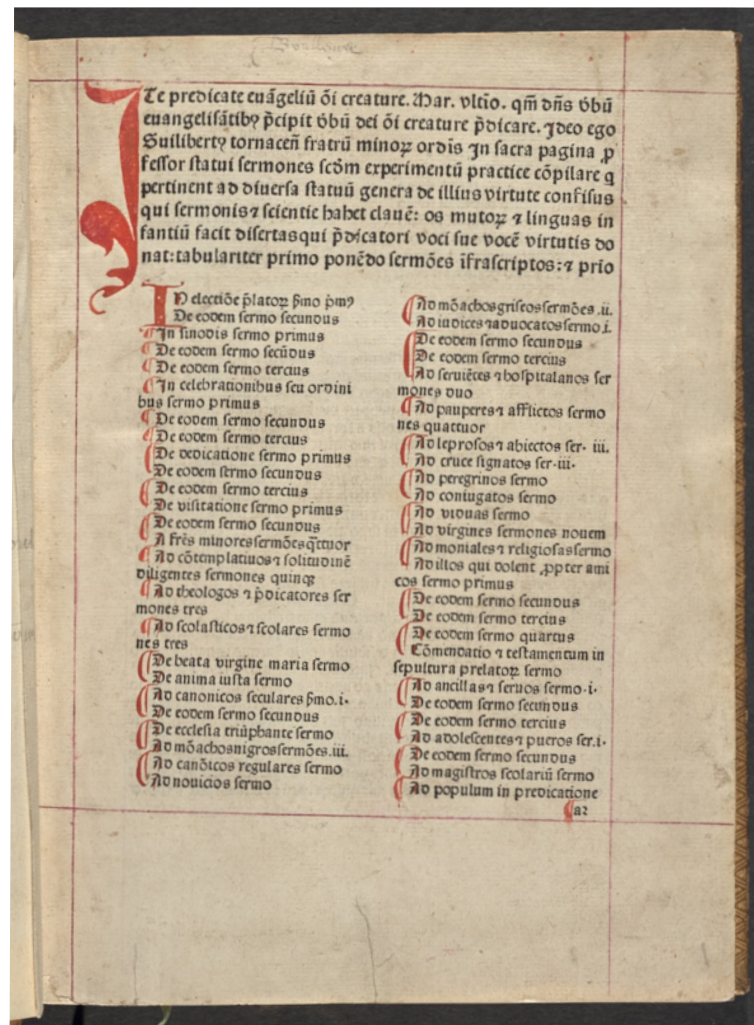 ITe predicate euãgeliũ õi creature. Mar. vltĩo. qm̃ dñs v̓bũ
euangelisãtibꝯ p̃cipit v̓bũ dei õi creature p̃dicare. Ideo ego
Guilibertꝯ tornaceñ fratrũ minoꝝ ordĩs In sacra pagina ꝓ
fessor statui sermones scd̓m experimentũ practice cõpilare q
pertinent ad diuersa statuũ genera de illius virtute confisus
qui sermonis ⁊ scientie habet clauẽ: os mutoꝝ ⁊ linguas in
fantiũ facit disertas qui p̃dicatori voci sue vocẽ virtutis do
nat: tabulariter primo ponẽdo sermões ĩfrascriptos: ⁊ prĩo
IN electiõe p̃latoꝝ ẜmo p̃mꝯ
De eodem sermo secundus
In sinodis sermo primus
De eodem sermo secũdus
De eodem sermo tercius
In celebrationibus seu ordini
bus sermo primus
De eodem sermo secundus
De eodem sermo tercius
De dedicatione sermo primus
De eodem sermo secundus
De eodem sermo tercius
De visitatione sermo primus
De eodem sermo secundus
A fr̃es minores sermões q̃ttuor
Ad cõtemplatiuos ⁊ solitudinẽ
diligentes sermones quinqꝫ
Ad theologos ⁊ p̃dicatores ser
mones tres
Ad scolasticos ⁊ scolares sermo
nes tres
De beata virgine maria sermo
De anima iusta sermo
Ad canonicos seculares ẜmo.i.
De eodem sermo secundus
De ecclesia triũphante sermo
Ad mõachos nigros sermões.iii.
Ad canõicos regulares sermo
Ad nouicios sermo
Ad mõachos griseos sermões.ii.
Ad iudices ⁊ aduocatos sermo i.
De eodem sermo secundus
De eodem sermo tercius
Ad seruiẽtes ⁊ hospitalanos ser
mones duo
Ad pauperes ⁊ afflictos sermo
nes quattuor
Ad leprosos ⁊ abiectos ser. iii.
Ad cruce signatos ser.iii.
Ad peregrinos sermo
Ad coniugatos sermo
Ad viduas sermo
Ad virgines sermones nouem
Ad moniales ⁊ religiosas sermo
Ad illos qui dolent ꝓpter ami
cos sermo primus
De eodem sermo secundus
De eodem sermo tercius
De eodem sermo quartus
Cõmendatio ⁊ testamentum in
sepultura prelatoꝝ sermo
Ad ancillas ⁊ seruos sermo.i.
De eodem sermo secundus
De eodem sermo tercius
Ad adolescentes ⁊ pueros ser.i.
De eodem sermo secundus
Ad magistros scolariũ sermo
Ad populum in predicatione
a2